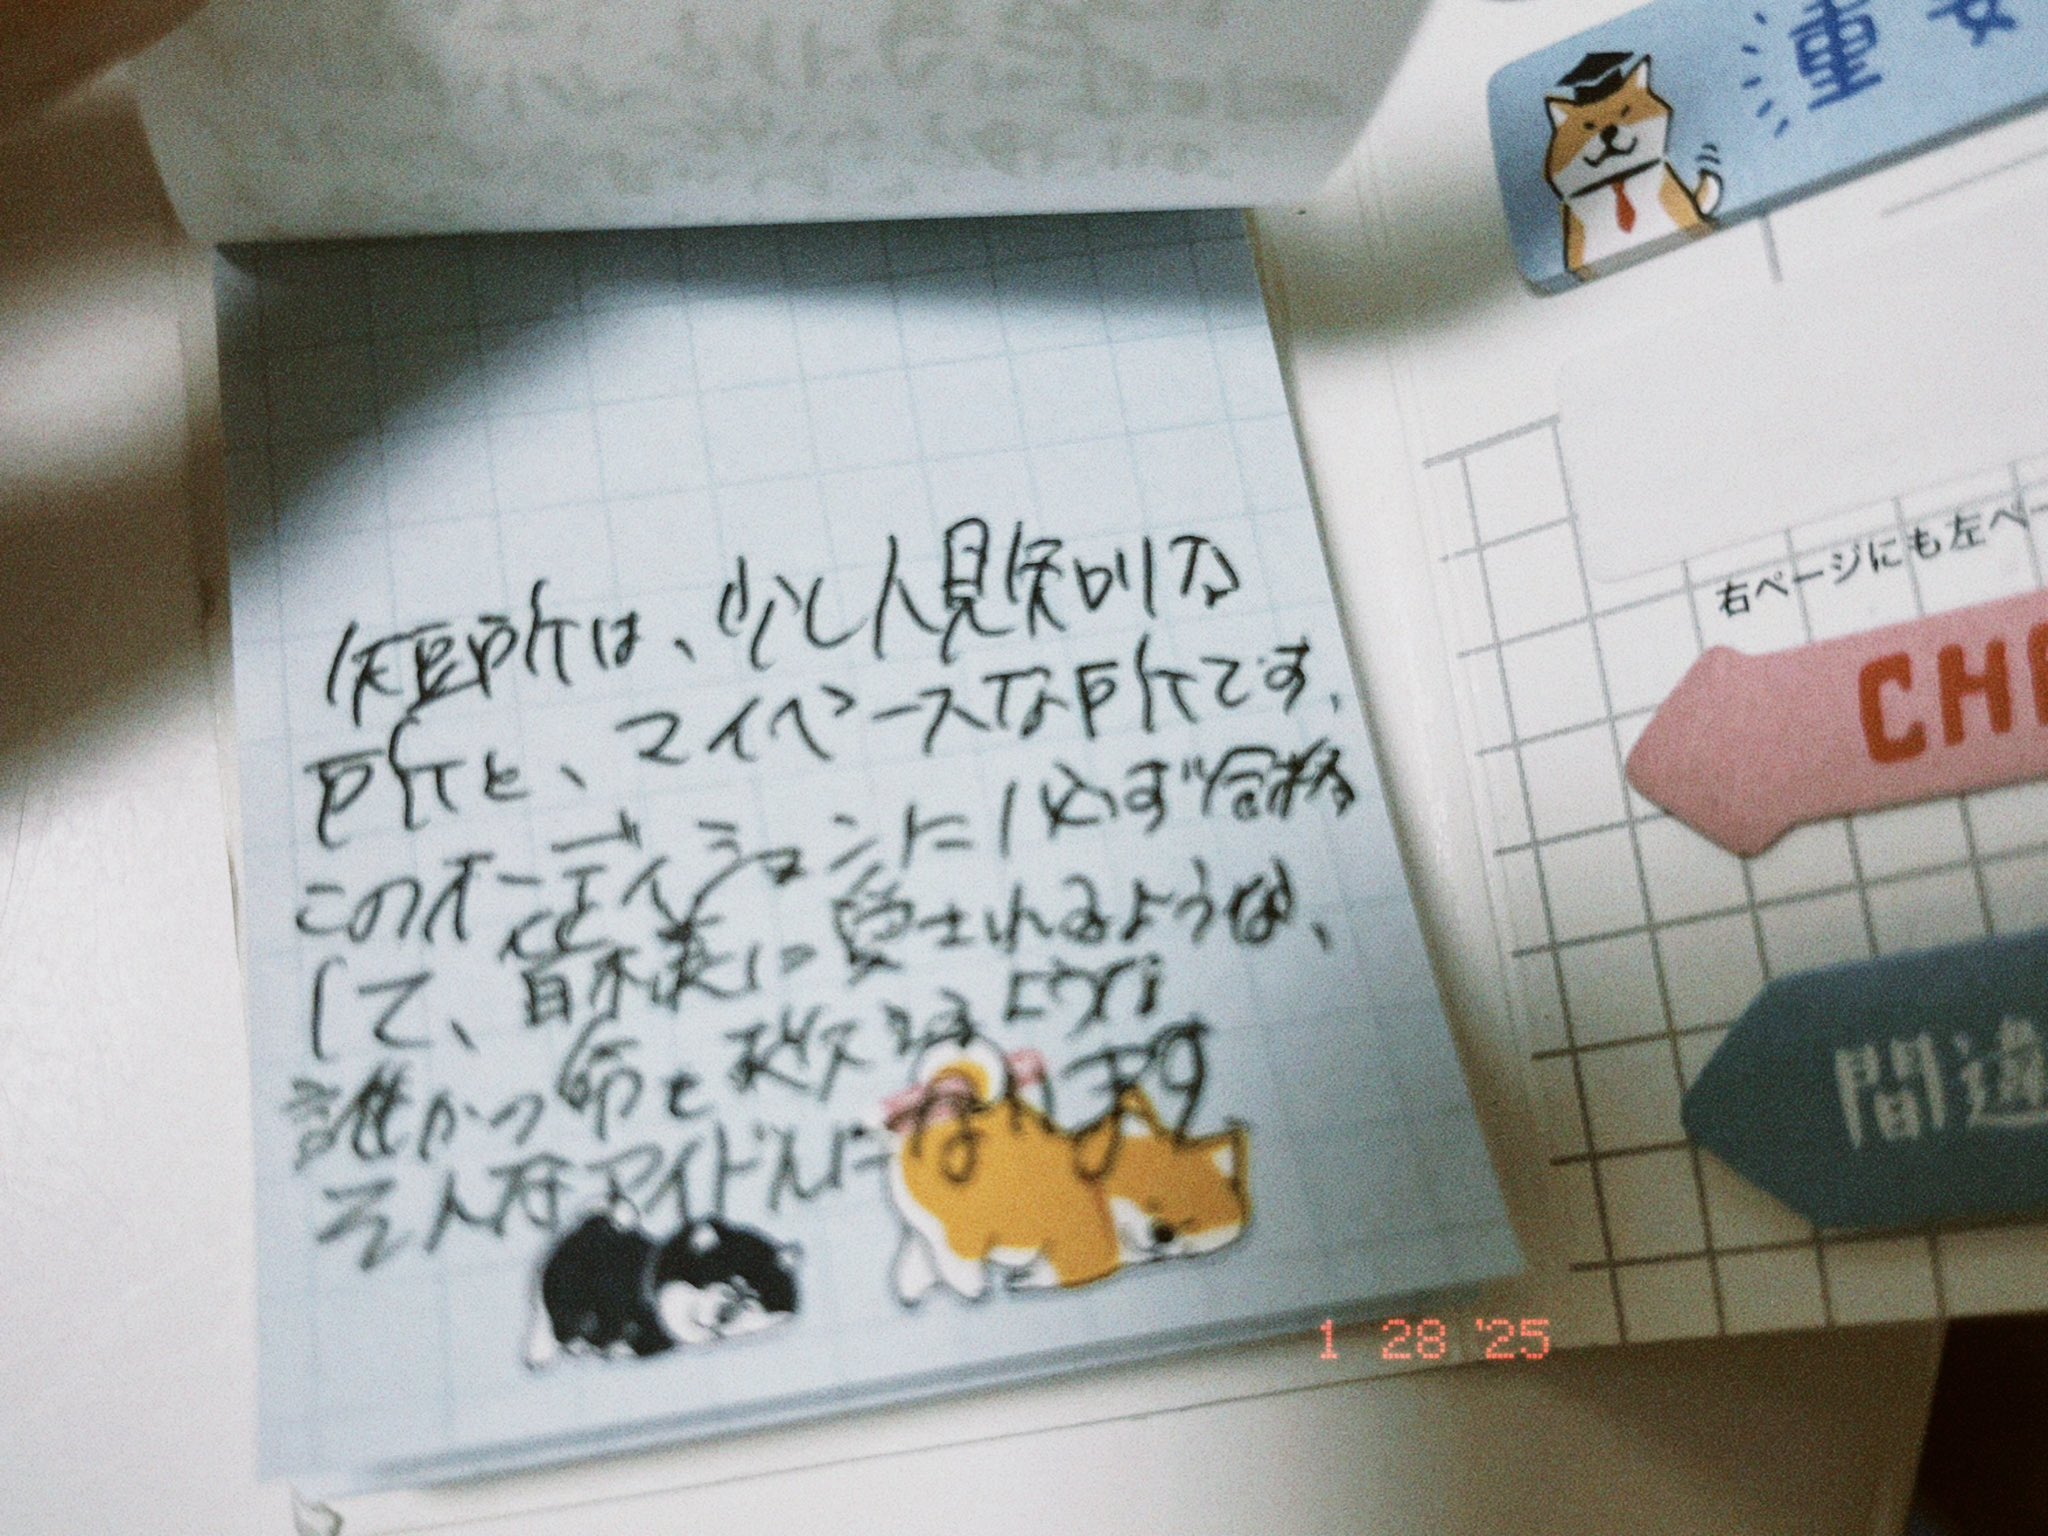 重要
短所は、少し人見知りな
所と、マイペースな所です、
このオーディションに必ず合格
して、皆様に愛されるような、
誰かの命を救えるような
そんなアイドルになります
右ページにも左ペー
CH
間違
1 28 '25